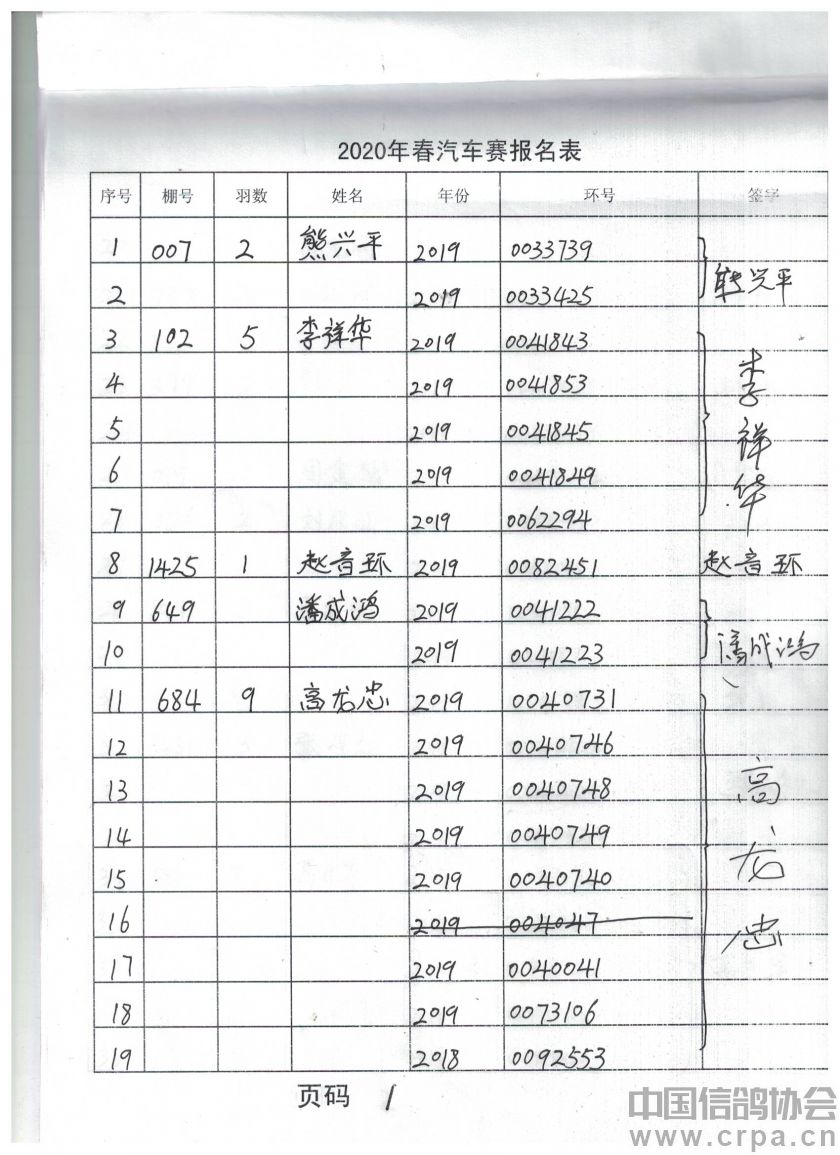 2020年春汽车赛报名表
序号 棚号 羽数 姓名 年份 环号 签字
1 007 2 熊兴平 2019 0033739
2 2019 0033425 熊兴平
3 102 5 李祥华 2019 0041843
4 2019 0041853 李
5 2019 0041845 祥
6 2019 0041849 华
7 2019 0062294
8 1425 1 赵音环 2019 0082451 赵音环
9 649 潘成鸿 2019 0041222
10 2019 0041223 潘成鸿
11 684 9 高龙忠 2019 0040731
12 2019 0040746
13 2019 0040748 高
14 2019 0040749
15 2019 0040740 龙
16 2019 004047 忠
17 2019 0040041
18 2019 0073106
19 2018 0092553
页码 1
中国信鸽协会
www.crpa.cn